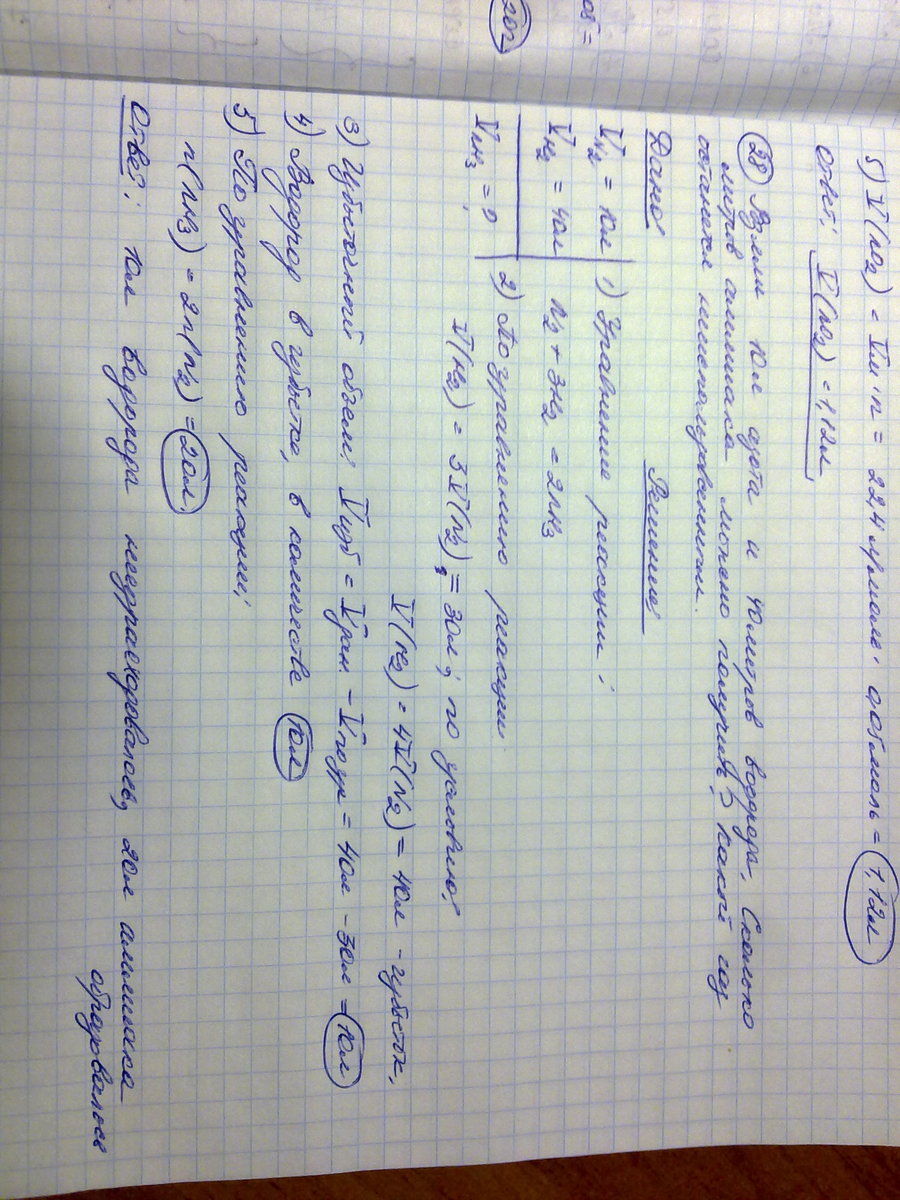 5) V(NO₂) = Vm·n = 22,4 л/моль · 0,05 моль = 1,12л
Ответ: V(NO₂) = 1,12л
28) Взяли 10л азота и 40 литров водорода. Сколько
литров аммиака можно получить? Какой газ
останется неизрасходованным.
Дано: Решение:
V N₂ = 10л 1) Уравнение реакции:
V H₂ = 40л N₂ + 3H₂ = 2NH₃
V NH₃ = ? 2) По уравнению реакции
V(H₂) = 3V(N₂) = 30л, по условию:
V(H₂) = 4V(N₂) = 40л - избыток,
3) Избыточный объем: Vизб = Vрац - Vпо ур = 40л - 30л = 10л
4) Водород в избытке, в количестве 10л
5) По уравнению реакции:
n(NH₃) = 2n(N₂) = 20л
Ответ: 10л водорода 20л аммиака
образовалось
об =
20г